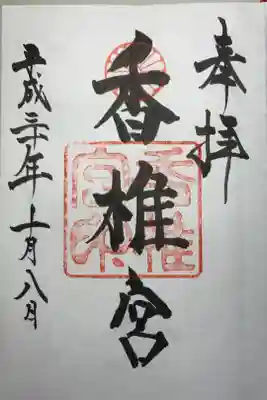 奉拝
香椎宮
香椎宮印
平成三十年十一月八日